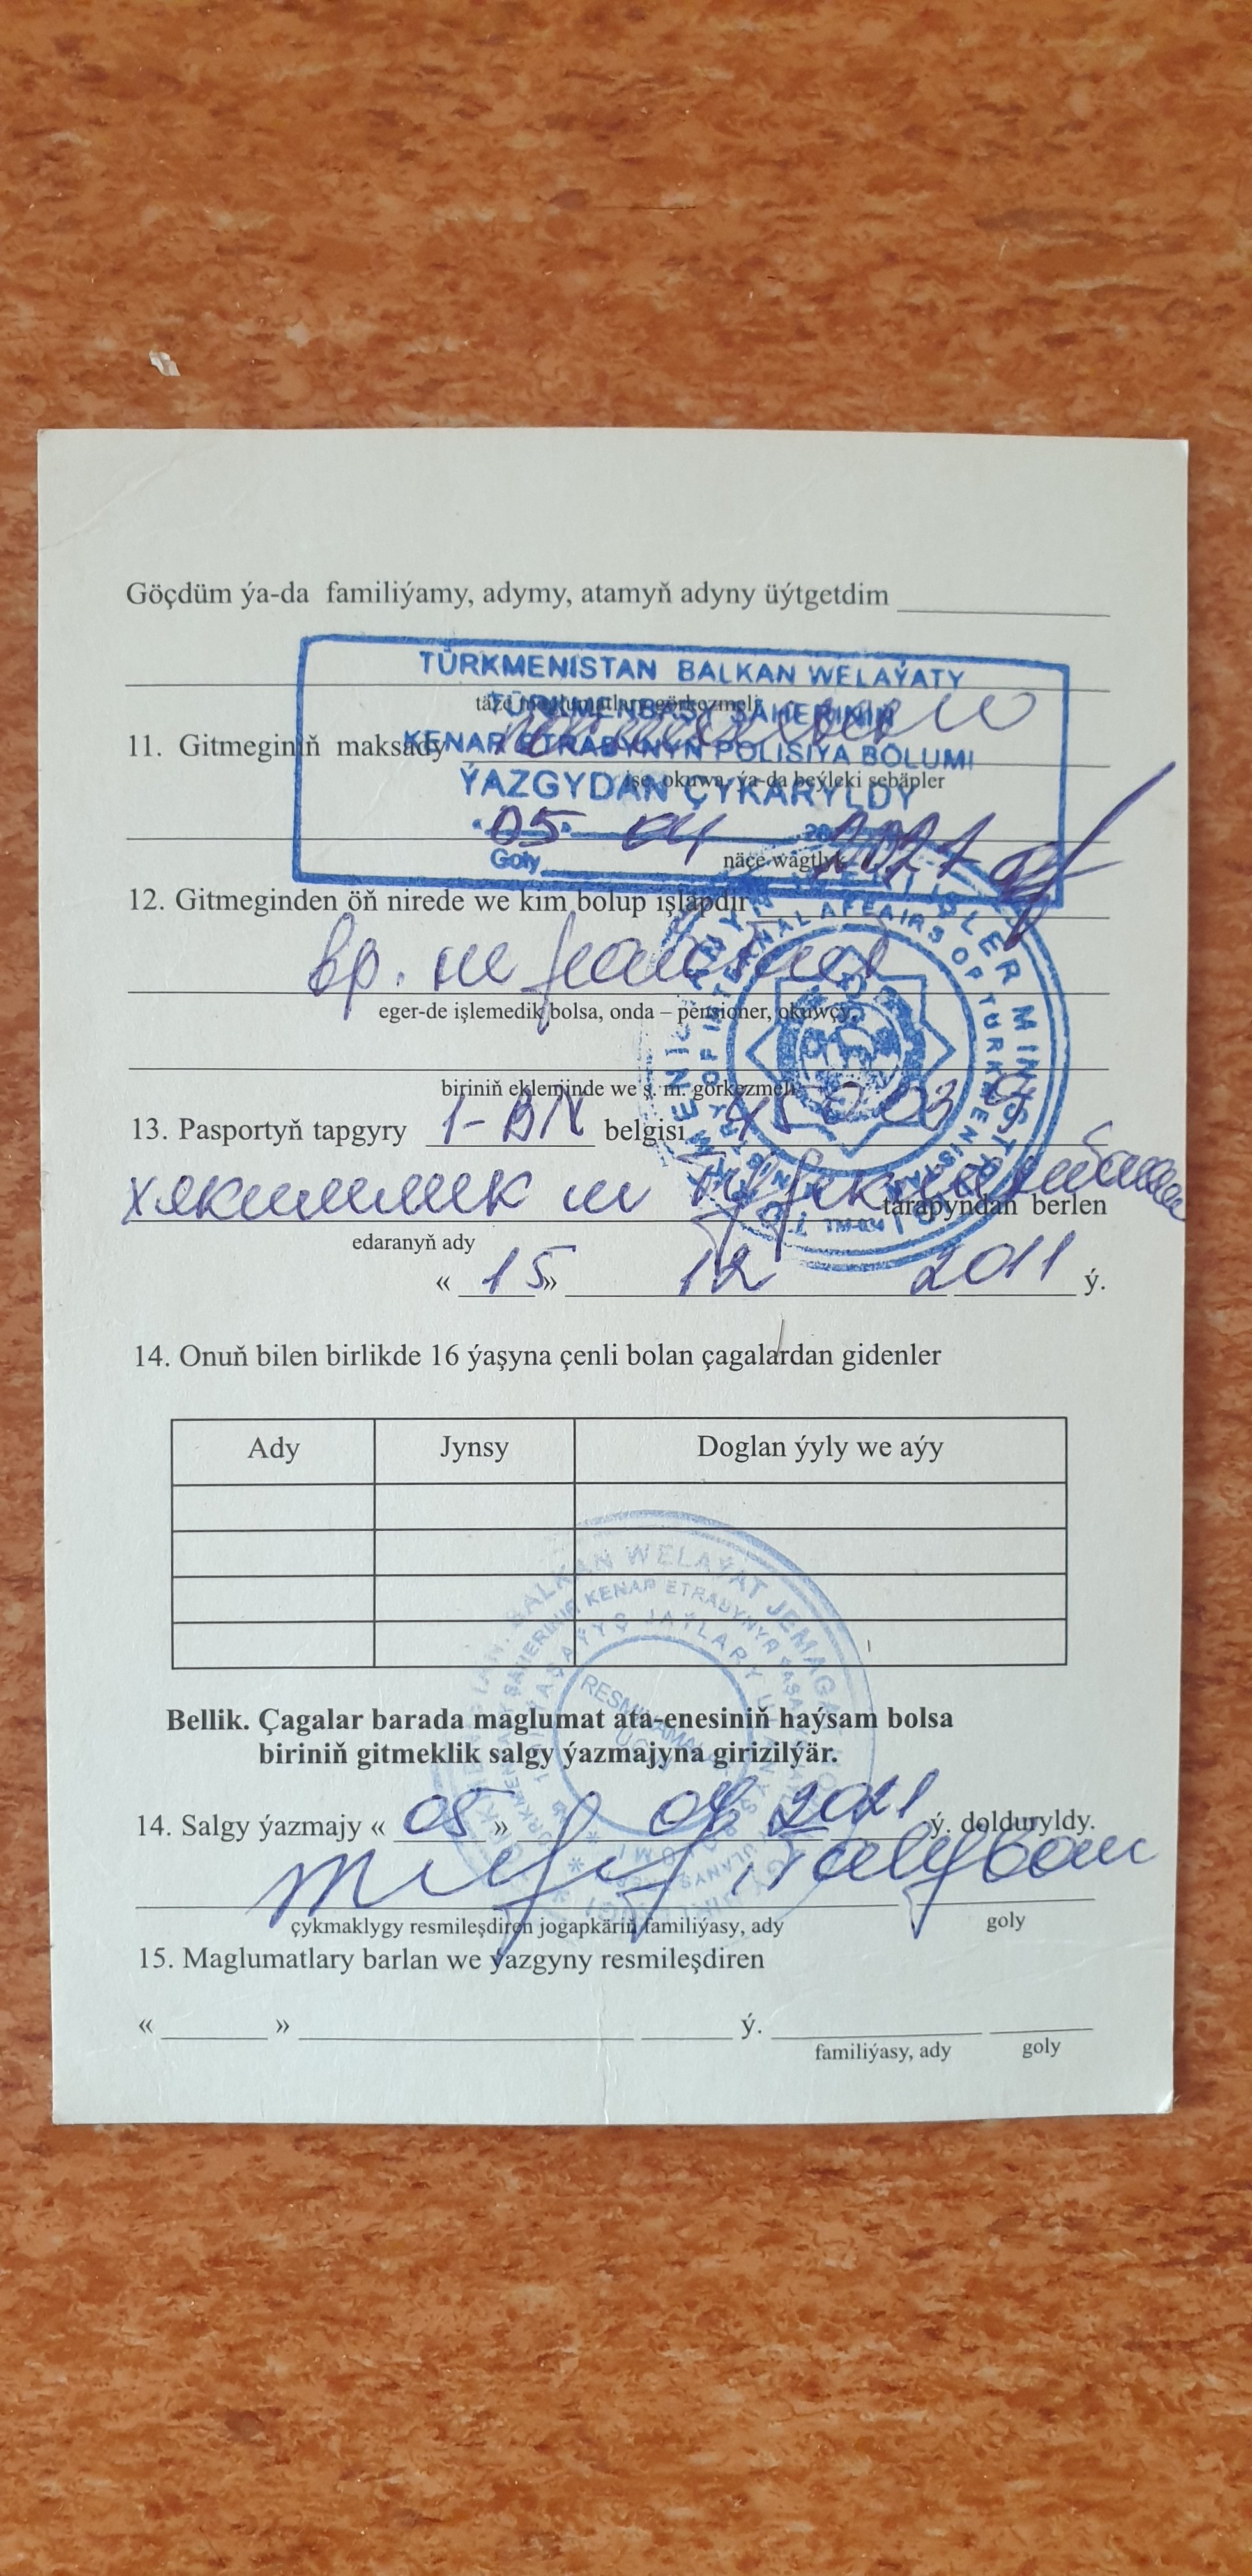 Göçdüm ýa-da familiýamy, adymy, atamyň adyny üýtgetdim
TÜRKMENISTAN BALKAN WELAÝATY
täze maglumatlary görkezmeli
TÜRKMENBAŞY ŞÄHERINIŇ
11. Gitmeginiň maksady
KENAR ETRABYNYŇ POLISIÝA BÖLÜMI
işe, okuwa, ýa-da beýleki sebäpler
ÝAZGYDAN ÇYKARYLDY
05 04 2021
Goly
näçe wagtlyk
12. Gitmeginden öň nirede we kim bolup işläpdir
вр. не работал
eger-de işlemedik bolsa, onda – pensioner, okuwçy,
biriniň eklenjinde we ş. m. görkezmeli
13. Pasportyň tapgyry 1-BN belgisi
хякимлик
tarapyndan berlen
edaranyň ady
« 15 » 12 2011 ý.
14. Onuň bilen birlikde 16 ýaşyna çenli bolan çagalardan gidenler
Ady Jynsy Doglan ýyly we aýy
BALKAN WELAÝAT
Bellik. Çagalar barada maglumat ata-enesiniň haýsam bolsa
biriniň gitmeklik salgy ýazmajyna girizilýär.
14. Salgy ýazmajy « 05 » 04 2021 ý. dolduryldy.
çykmaklygy resmileşdiren jogapkäriň familiýasy, ady goly
15. Maglumatlary barlan we ýazgyny resmileşdiren
« » ý.
familiýasy, ady goly